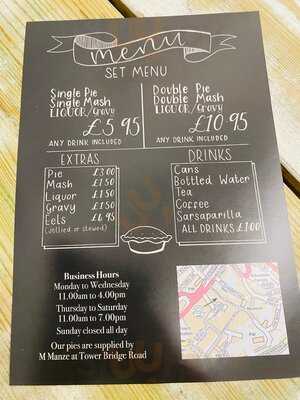 menu
SET MENU
Single Pie
Single Mash
LIQUOR/Gravy
£5.95
ANY DRINK INCLUDED
Double Pie
Double Mash
LIQUOR/Gravy
£10.95
ANY DRINK INCLUDED
EXTRAS
Pie £3.00
Mash £1.50
Liquor £1.50
Gravy £1.50
Eels £6.95
(Jellied or stewed)
DRINKS
Cans
Bottled Water
Tea
Coffee
Sarsaparilla
ALL DRINKS £1.00
Business Hours
Monday to Wednesday
11.00am to 4.00pm
Thursday to Saturday
11.00am to 7.00pm
Sunday closed all day
Our pies are supplied by
M Manze at Tower Bridge Road